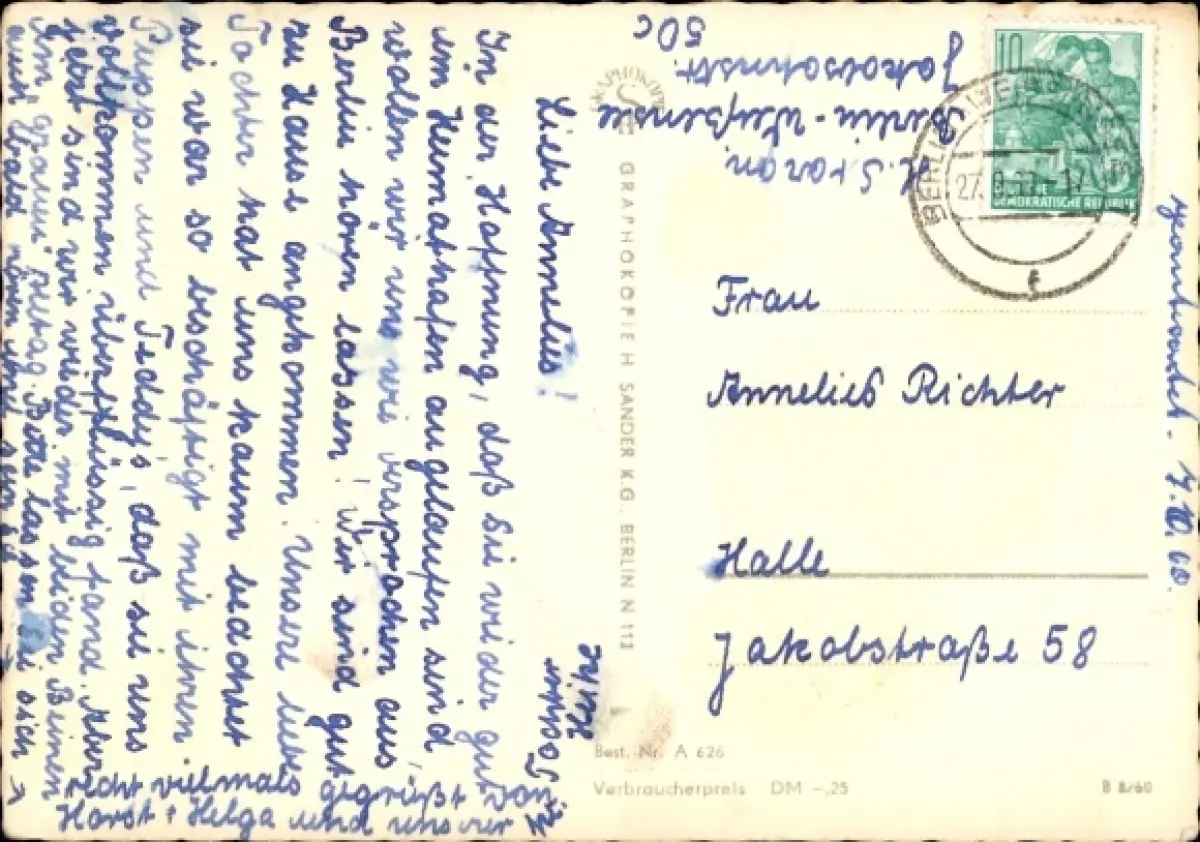 Liebe Annelies!
In der Hoffnung, daß Sie wieder gut
im Heimathafen angelaufen sind,
wollen wir uns wie versprochen aus
Berlin hören lassen! Wir sind gut
zu Hause angekommen. Unsere liebe
Tochter hat uns kaum beachtet
sie war so beschäftigt mit ihren
Puppen und Teddy's, daß sie uns
vollkommen überflüssig fand. Aber
jetzt sind wir wieder mit beiden Beinen
im "grauen" Alltag. Bitte lassen Sie sich →
auch bald hören und sein Sie
recht vielmals gegrüßt von
Horst + Helga und unserer
Tochter
H.
Berlin-Weißensee
Jakobsohnstr.
50c
GRAPHOKOPIE
GRAPHOKOPIE H SANDER K.G., BERLIN N 113
10
DEMOKRATISCHE REPUBLIK
BERLIN
Frau
Annelies Richter
Halle
Jakobstraße 58
geantwortet - 7.10.60.
Best.-Nr. A 626
Verbraucherpreis DM -,25
B 8/60